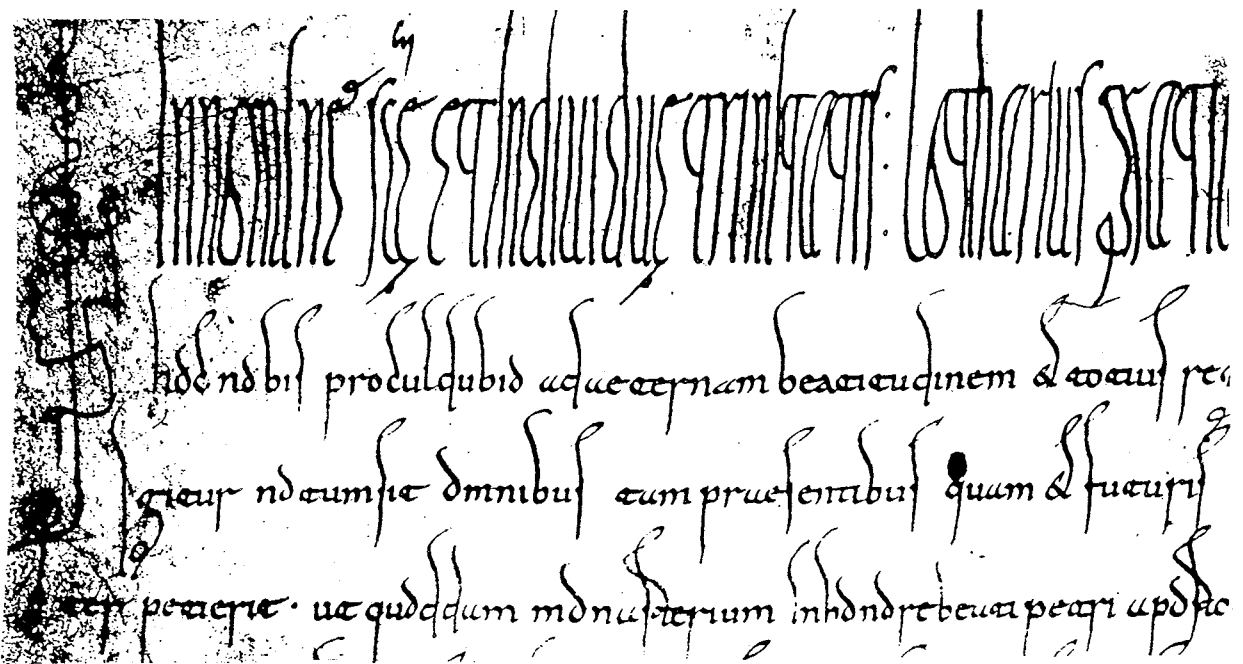 In nomine sce et indiuidue trinitatis : Lotharius grati
hoc nobis proculdubio adaeternam beatitudinem & totius re
Igitur notum sit omnibus tam praesentibus quam & futuris
petierit · ut quoddam monasterium inhonore beati petri